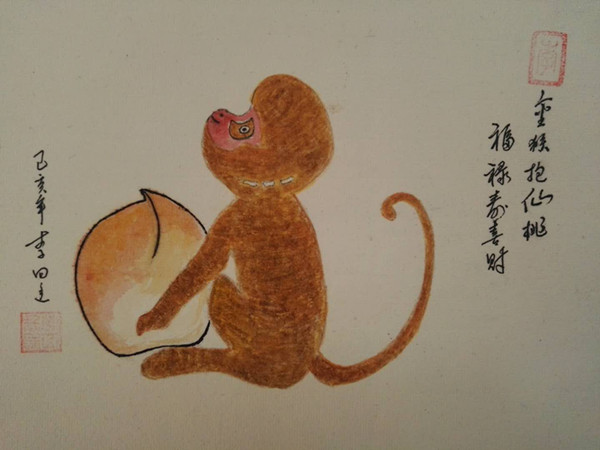 金猴抱仙桃
福禄寿喜财
己亥年李田